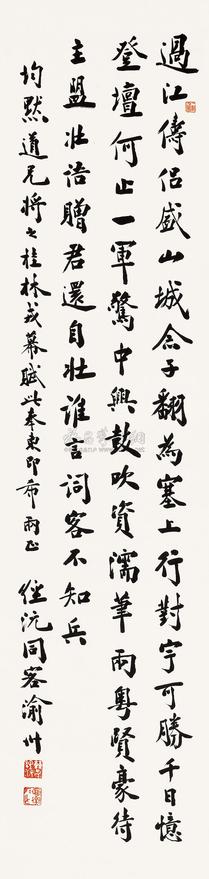 過江儔侶盛山城念子翻為塞上行對宇可勝千日憶
登壇何止一軍驚中興鼓吹資濡筆兩粵賢豪待
主盟壯語贈君還自壯誰言詞客不知兵
均默道兄將之桂林戎幕賦此奉柬即希兩正 經沅同客渝州